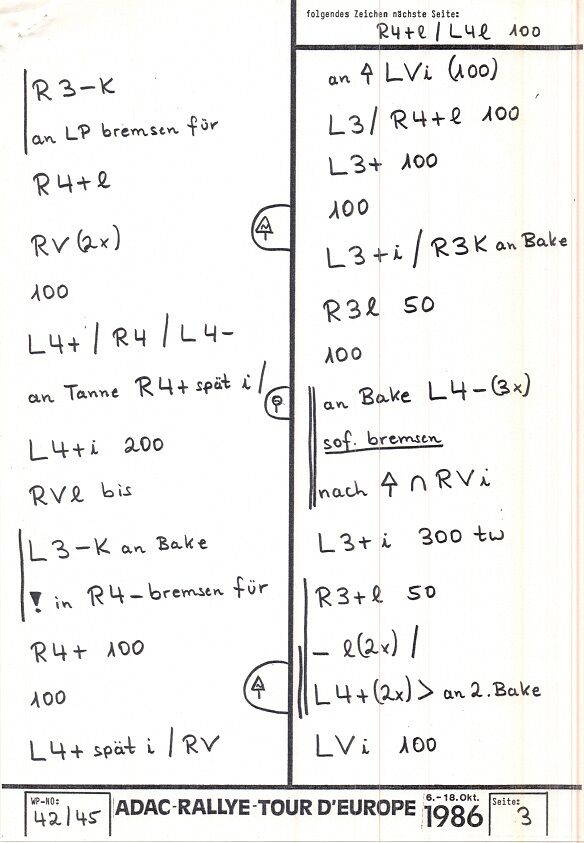 folgendes Zeichen nächste Seite:
R4+l / L4l 100
R3-K
an LP bremsen für
R4+l
RV (2x)
100
L4+ / R4 / L4-
an Tanne R4+ spät i /
L4+i 200
RVl bis
L3-K an Bake
! in R4- bremsen für
R4+ 100
100
L4+ spät i / RV
an ↑ LVi (100)
L3 / R4+l 100
L3+ 100
100
L3+i / R3K an Bake
R3l 50
100
an Bake L4-(3x)
sof. bremsen
nach ↑ ∩ RVi
L3+i 300 tw
R3+l 50
- l(2x) /
L4+(2x) > an 2. Bake
LVi 100
WP-NO:
42/45
ADAC-RALLYE-TOUR D'EUROPE
6.-18.Okt.
1986
Seite:
3